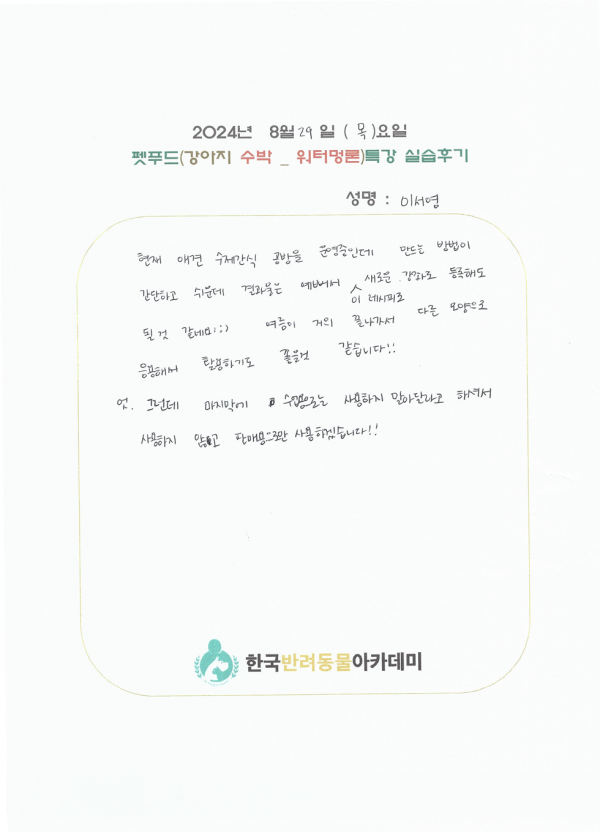 2024년 8월 29일 (목)요일
펫푸드(강아지 수박 _ 워터멍론)특강 실습후기
성명 : 이서영
현재 애견 수제간식 공방을 운영중인데 만드는 방법이
간단하고 쉬운데 결과물은 예뻐서 이 레시피로 새로운 강좌로 등록해도
될 것 같네요:;) 여름이 거의 끝나가서 다른 모양으로
응용해서 활용하기도 좋을것 같습니다!!
엇. 그런데 마지막에 수업용으로는 사용하지 말아달라고 하셔서
사용하지 않고 판매용으로만 사용하겠습니다!!
한국반려동물아카데미